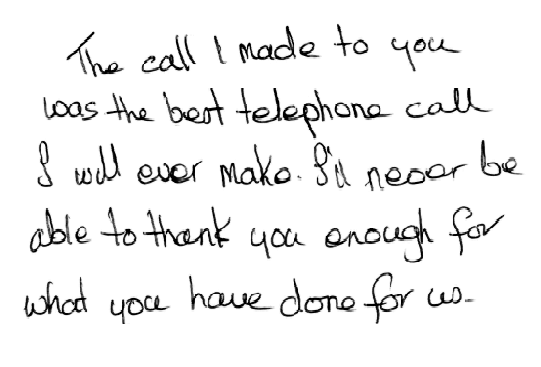 The call I made to you
was the best telephone call
I will ever make. I'll never be
able to thank you enough for
what you have done for us.